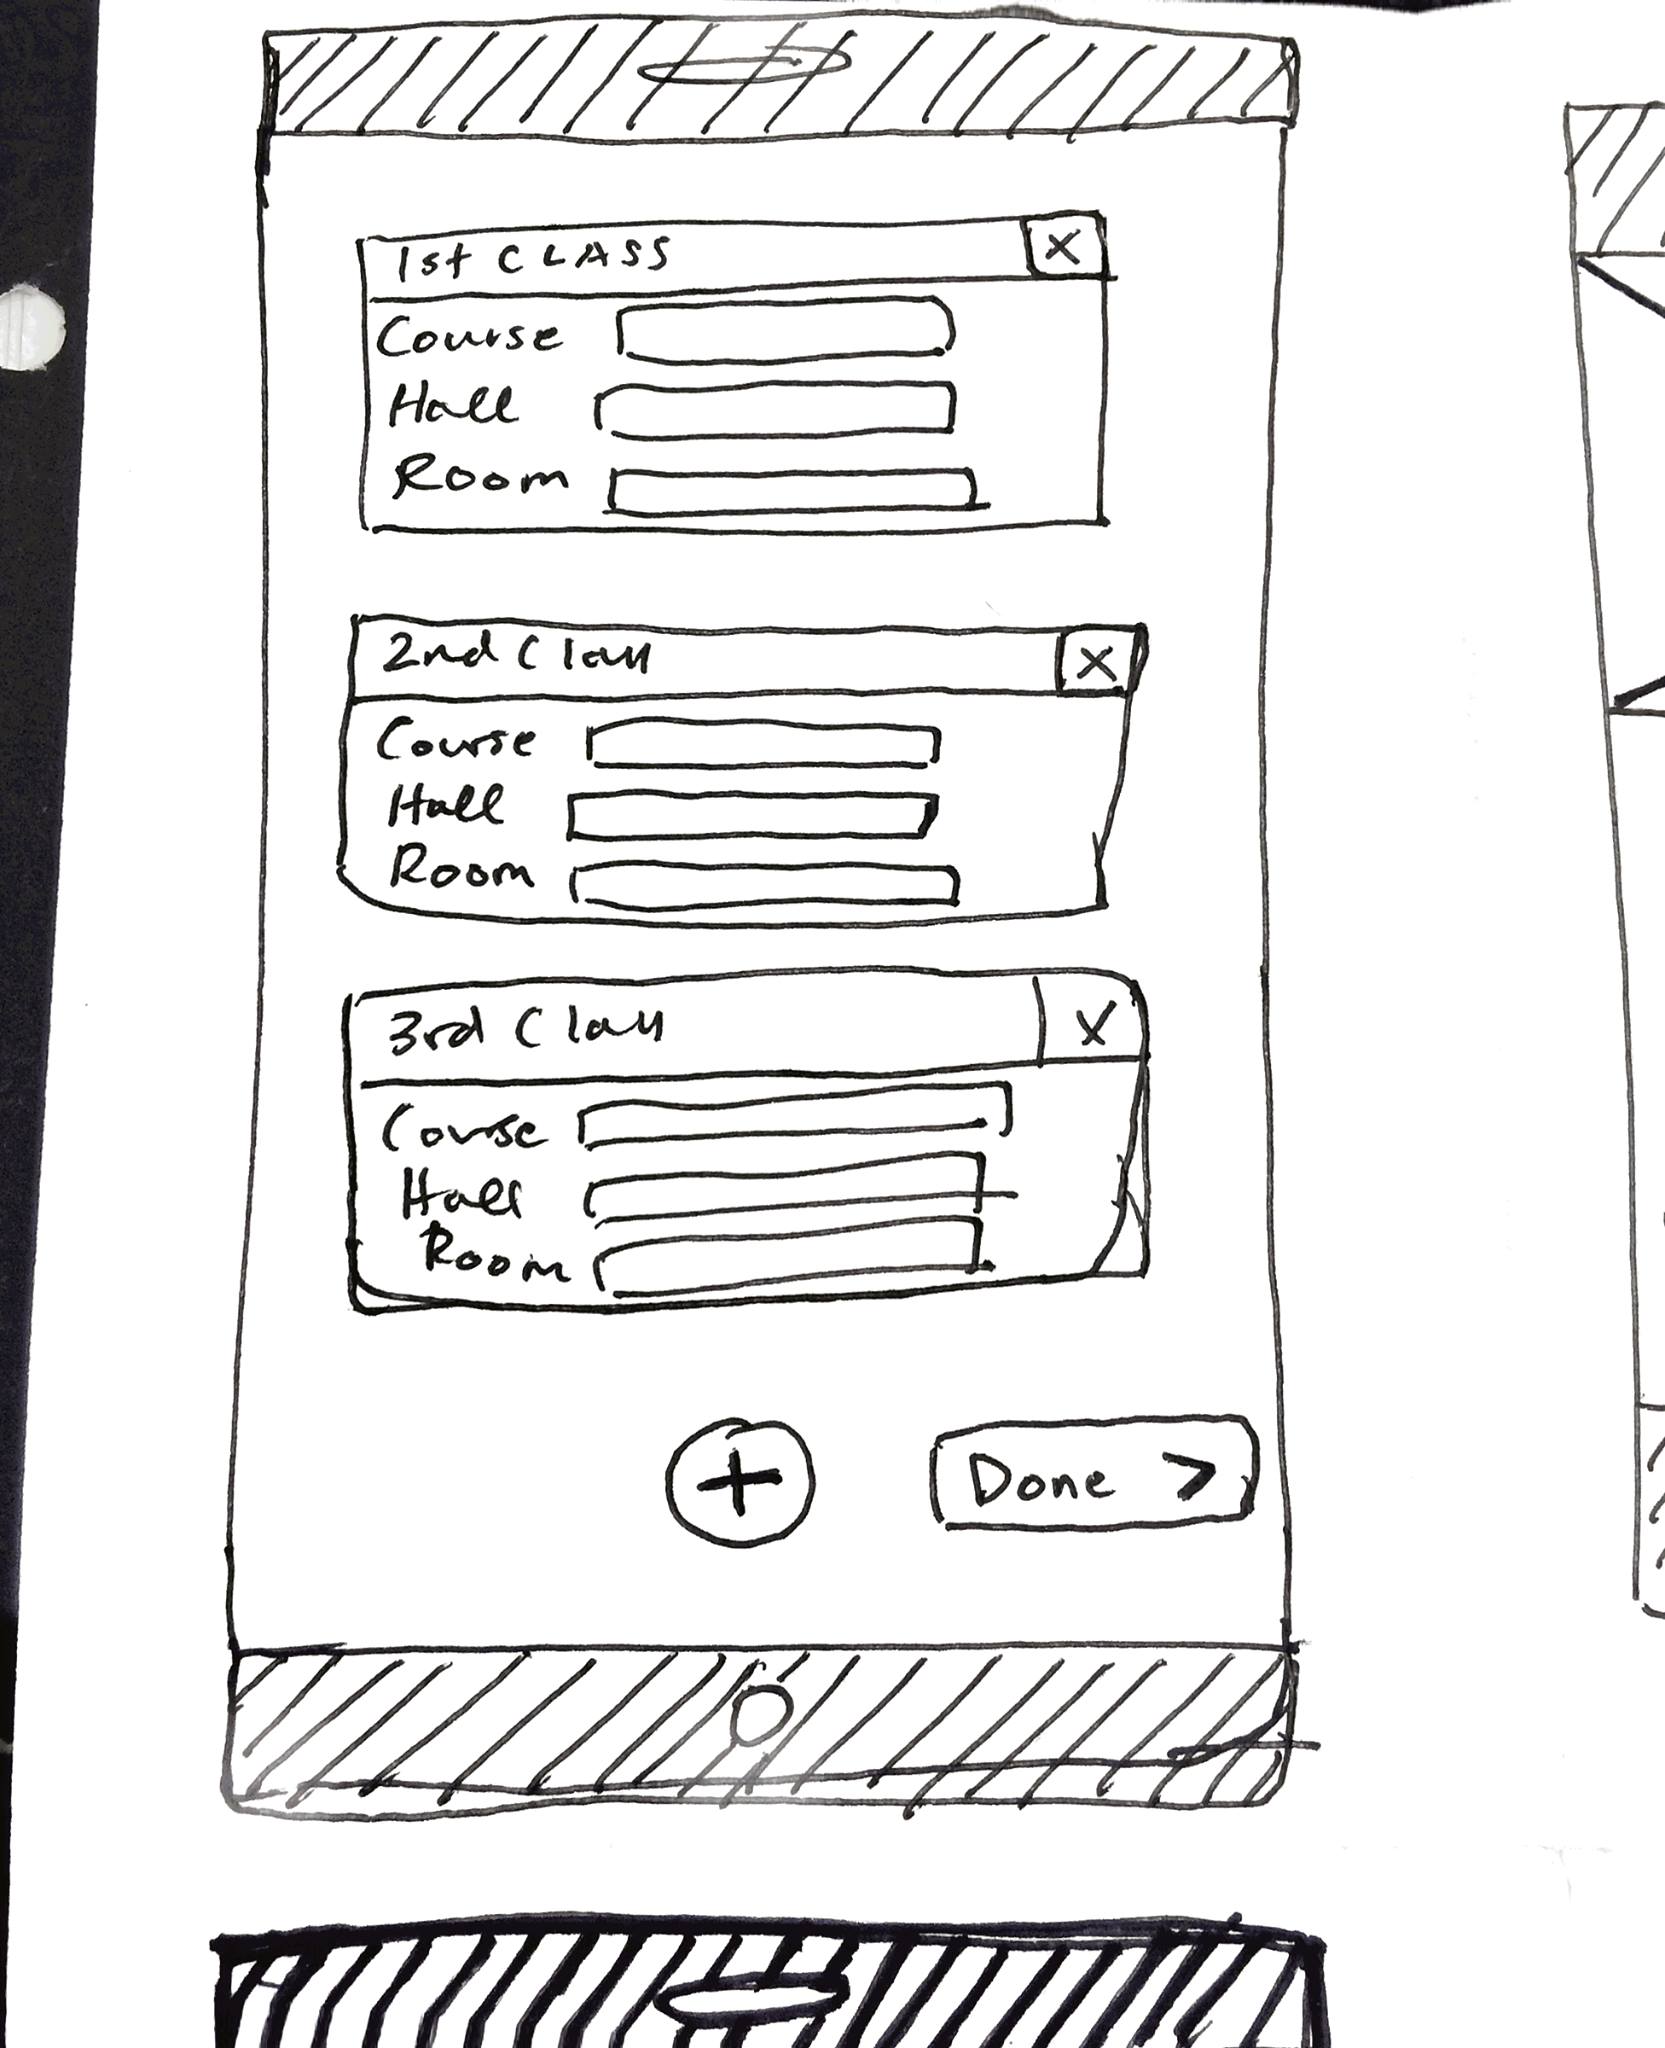 1st CLASS X
Course
Hall
Room
2nd Class X
Course
Hall
Room
3rd Class X
Course
Hall
Room
+ Done >